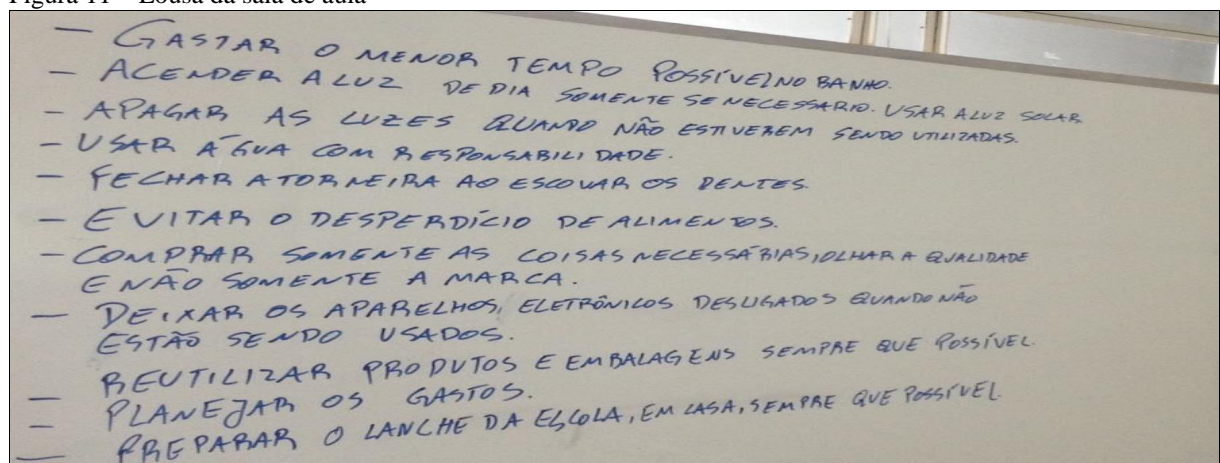 Figura 11 – Lousa da sala de aula
– GASTAR O MENOR TEMPO POSSÍVEL NO BANHO.
– ACENDER A LUZ DE DIA SOMENTE SE NECESSÁRIO. USAR A LUZ SOLAR
– APAGAR AS LUZES QUANDO NÃO ESTIVEREM SENDO UTILIZADAS.
– USAR ÁGUA COM RESPONSABILIDADE.
– FECHAR A TORNEIRA AO ESCOVAR OS DENTES.
– EVITAR O DESPERDÍCIO DE ALIMENTOS.
– COMPRAR SOMENTE AS COISAS NECESSÁRIAS, OLHAR A QUALIDADE
E NÃO SOMENTE A MARCA.
– DEIXAR OS APARELHOS, ELETRÔNICOS DESLIGADOS QUANDO NÃO
ESTÃO SENDO USADOS.
– REUTILIZAR PRODUTOS E EMBALAGENS SEMPRE QUE POSSÍVEL.
– PLANEJAR OS GASTOS.
– PREPARAR O LANCHE DA ESCOLA, EM CASA, SEMPRE QUE POSSÍVEL.